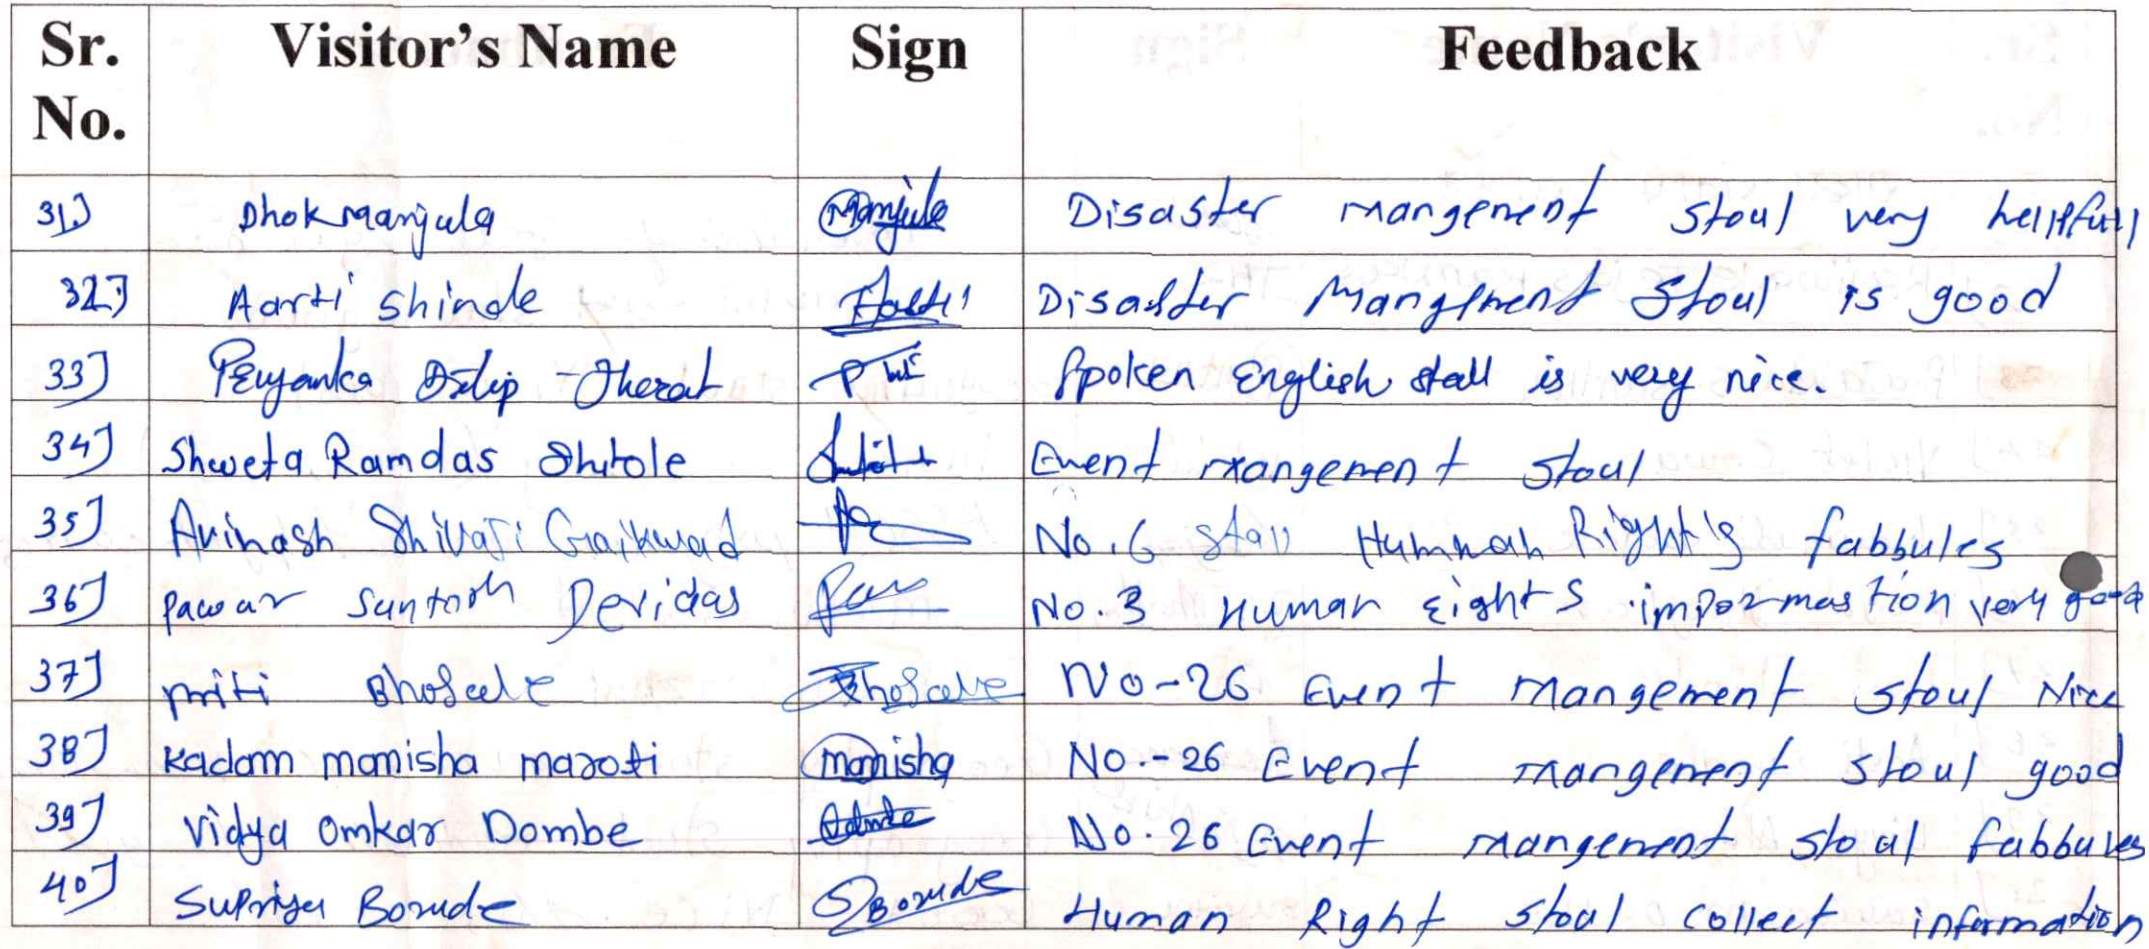 Sr. No. Visitor's Name Sign Feedback
31) Dhok Manjula Manjula Disaster mangement stoul very hellpfull
32) Aarti Shinde Aarti Disaster Mangment Stoul is good
33) Priyanka Dilip Thorat Spoken English stall is very nice.
34) Shweta Ramdas Shitole Event mangement stoul
35) Avinash Shivaji Gaikwad No. 6 stall Humnah Right's fabbules
36) Pawar Santosh Devidas No. 3 Human rights impormastion very good
37) Priti Bhosale Bhosale No-26 Event mangement stoul Nice
38) Kadam manisha maroti manisha No.-26 Event mangement stoul good
39) Vidya Omkar Dombe No. 26 Event mangement stoul fabbules
40) Supriya Borude SBorude Human Right stoul collect information